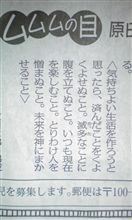 ムムムの目 原
〈気持ちよい生活を作ろうと
思ったら、済んだことをくよ
くよせぬこと。滅多なことに
腹を立てぬこと。いつも現在
を楽しむこと。とりわけ人を
憎まぬこと。未来を神にまか
せること〉
見を募集します。郵便は〒100-